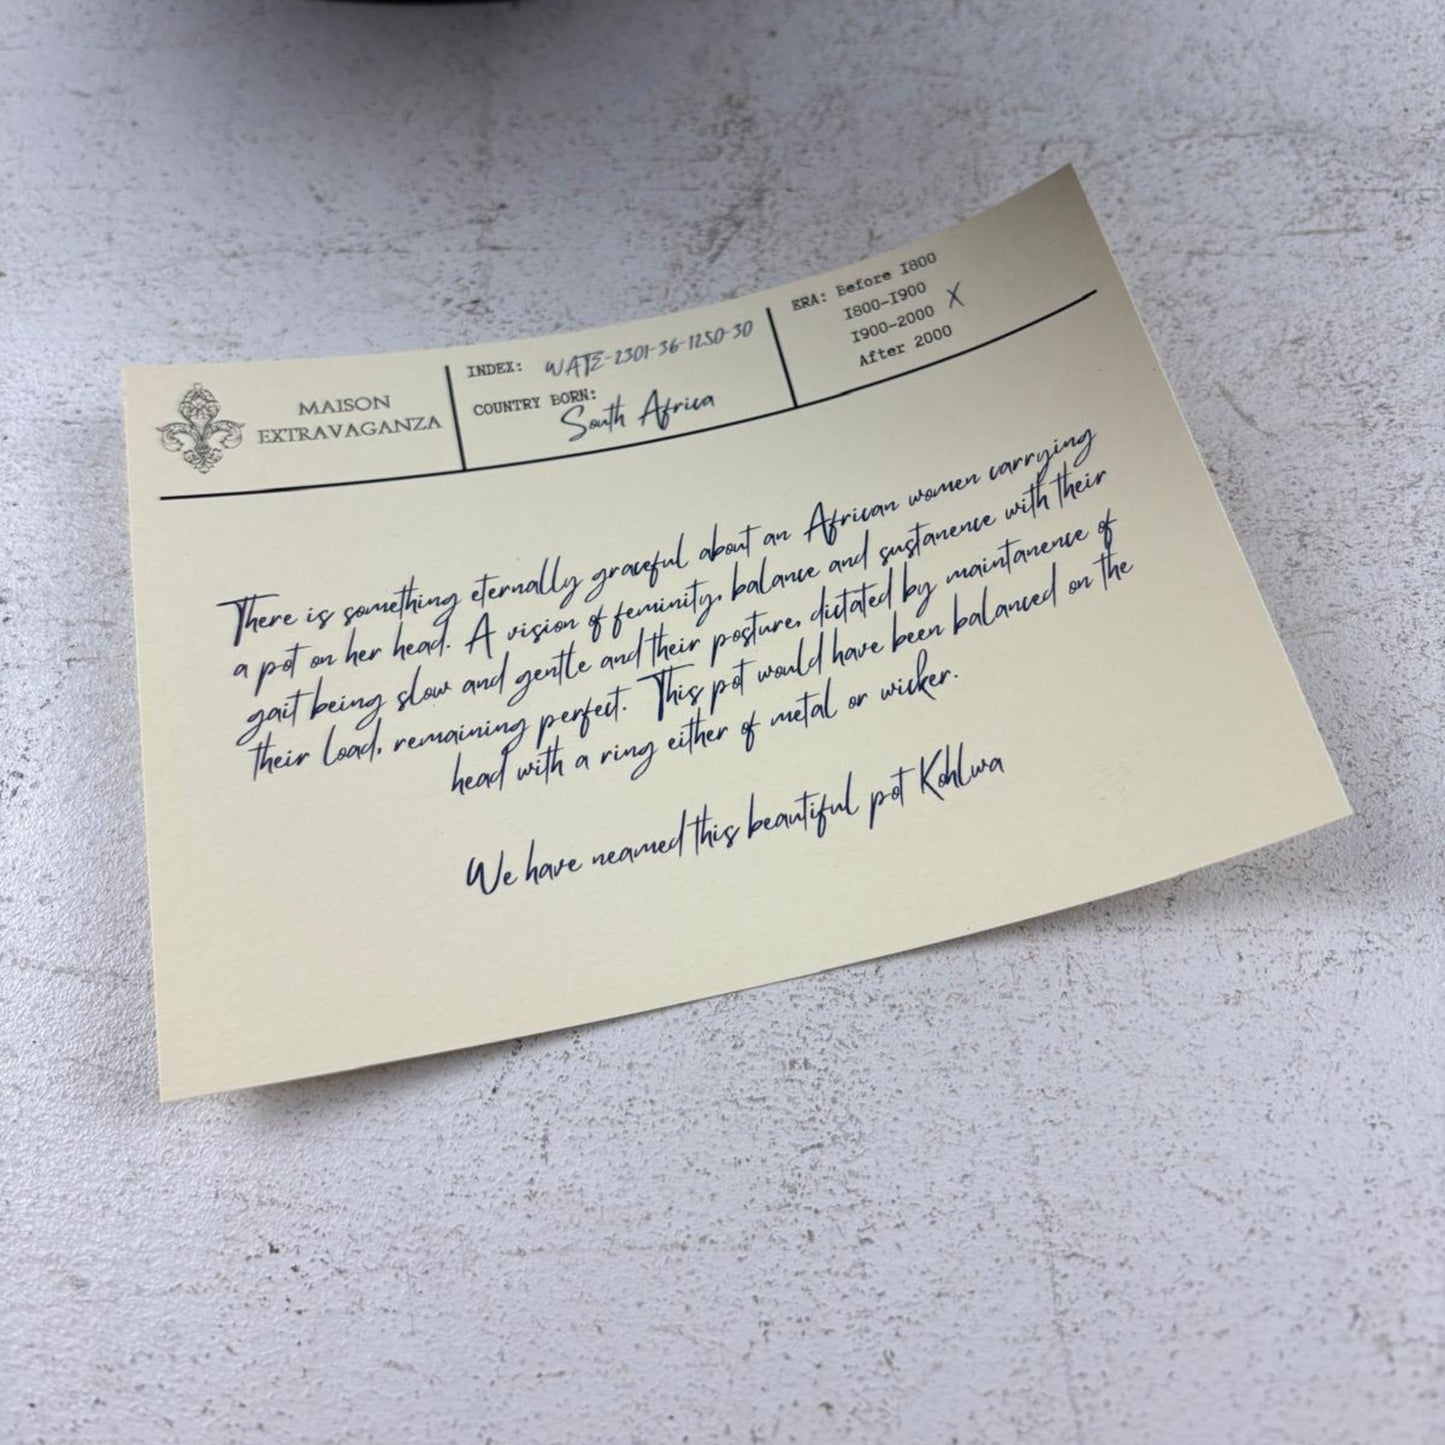 MAISON
EXTRAVAGANZA
INDEX: WATE-2301-36-1250-30
COUNTRY BORN:
South Africa
ERA: Before 1800
1800-1900
1900-2000 X
After 2000
There is something eternally graceful about an African women carrying
a pot on her head. A vision of feminity, balance and sustanence with their
gait being slow and gentle and their posture, dictated by maintanence of
their load, remaining perfect. This pot would have been balanced on the
head with a ring either of metal or wicker.
We have neamed this beautiful pot Kohlwa